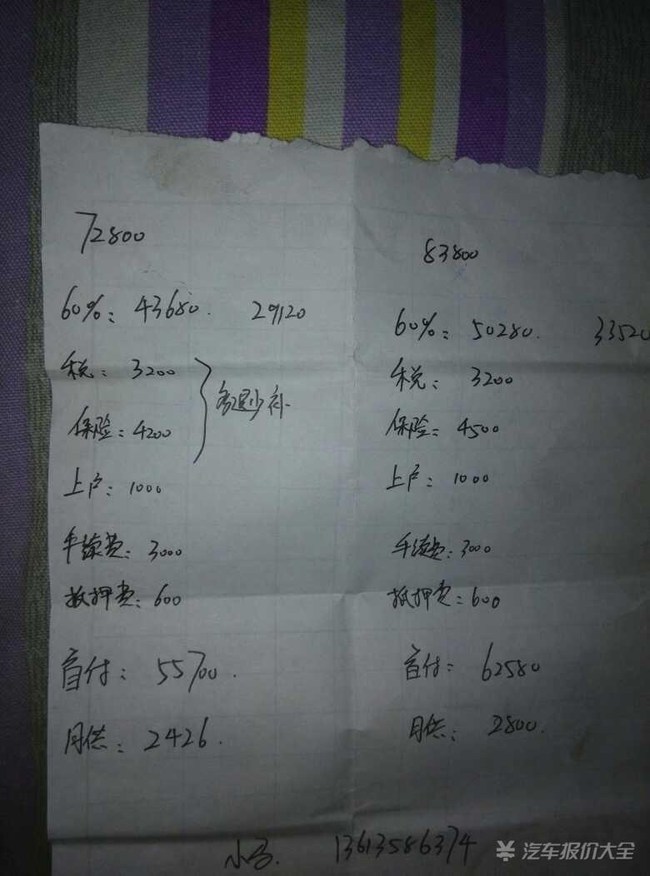 72800
60%: 43680. 29120
税: 3200
保险: 4200
多退少补
上户: 1000
手续费: 3000
抵押费: 600
首付: 55700.
月供: 2426.
83800
60%: 50280. 33520
税: 3200
保险: 4500
上户: 1000
手续费: 3000
抵押费: 600
首付: 62580
月供: 2800.
小马. 13613586374
汽车报价大全